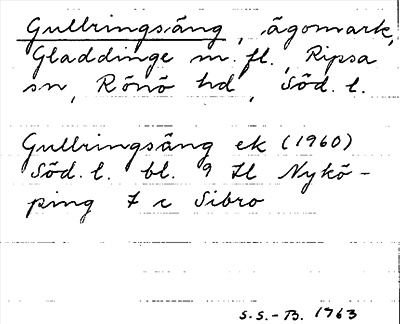 Gullringsäng, ägomark,
Gladdinge m. fl., Ripsa
sn, Rönö hd, Söd. l.
Gullringsäng ek (1960)
Söd. l. bl. 9 H Nykö-
ping 7 c Sibro
S.S.-B. 1963